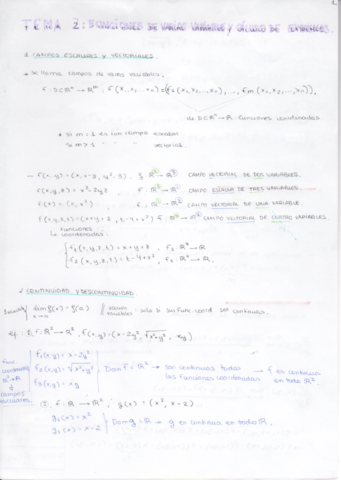 TEMA 2: FUNCIONES DE VARIAS VARIABLES Y CÁLCULO DE EXTREMOS.
CAMPOS ESCALARES Y VECTORIALES
Se llama campos de varias variables:
f: D⊂ℝⁿ → ℝᵐ : f(x₁, x₂, ... xₙ) = (f₁(x₁, x₂, ..., xₙ), ..., fm(x₁, x₂, ..., xₙ)),
de D⊂ℝⁿ → ℝ : funciones coordenadas
* si m = 1 es un campo escalar
si m > 1 " " " vectorial.
CAMPO VECTORIAL DE DOS VARIABLES.
f(x,y,z) = x² - 2yz f: ℝ³ → ℝ CAMPO ESCALAR DE TRES VARIABLES.
CAMPO VECTORIAL DE UNA VARIABLE.
f(x,y,z,t) = (x+y+z, t-4+x²) f: ℝ⁴ → ℝ² CAMPO VECTORIAL DE CUATRO VARIABLES.
funciones
coordenadas:
f₁(x,y,z,t) = x+y+z, f₁: ℝ⁴ → ℝ
f₂(x,y,z,t) = t-4+x², f₂: ℝ⁴ → ℝ.
CONTINUIDAD Y DISCONTINUIDAD.
varias variables solo si sus func. coord. son continuas.
ej: 1. f: ℝ² → ℝ³, f(x,y) = (x-2y², √x²+y², xy)
func. coordenadas
campos escalares.
f₁(x,y) = x-2y²
f₂(x,y) = √x²+y²
f₃(x,y) = xy
Dom f = ℝ² → son continuas todas las funciones coordenadas → f es continua en todo ℝ²
②. f: ℝ → ℝ², g(x) = (x², x-2)
g₁(x) = x²
g₂(x) = x-2
Dom g = ℝ → g es continua en todo ℝ.